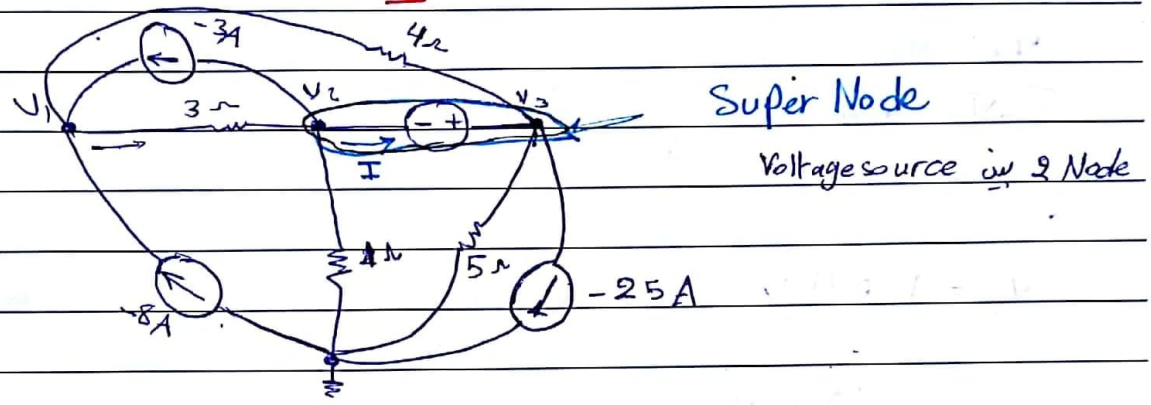 -3A
4Ω
V1
3Ω
V2
- +
V3
Super Node
I
Voltage source بين 2 Node
1Ω
5Ω
-8A
-25A